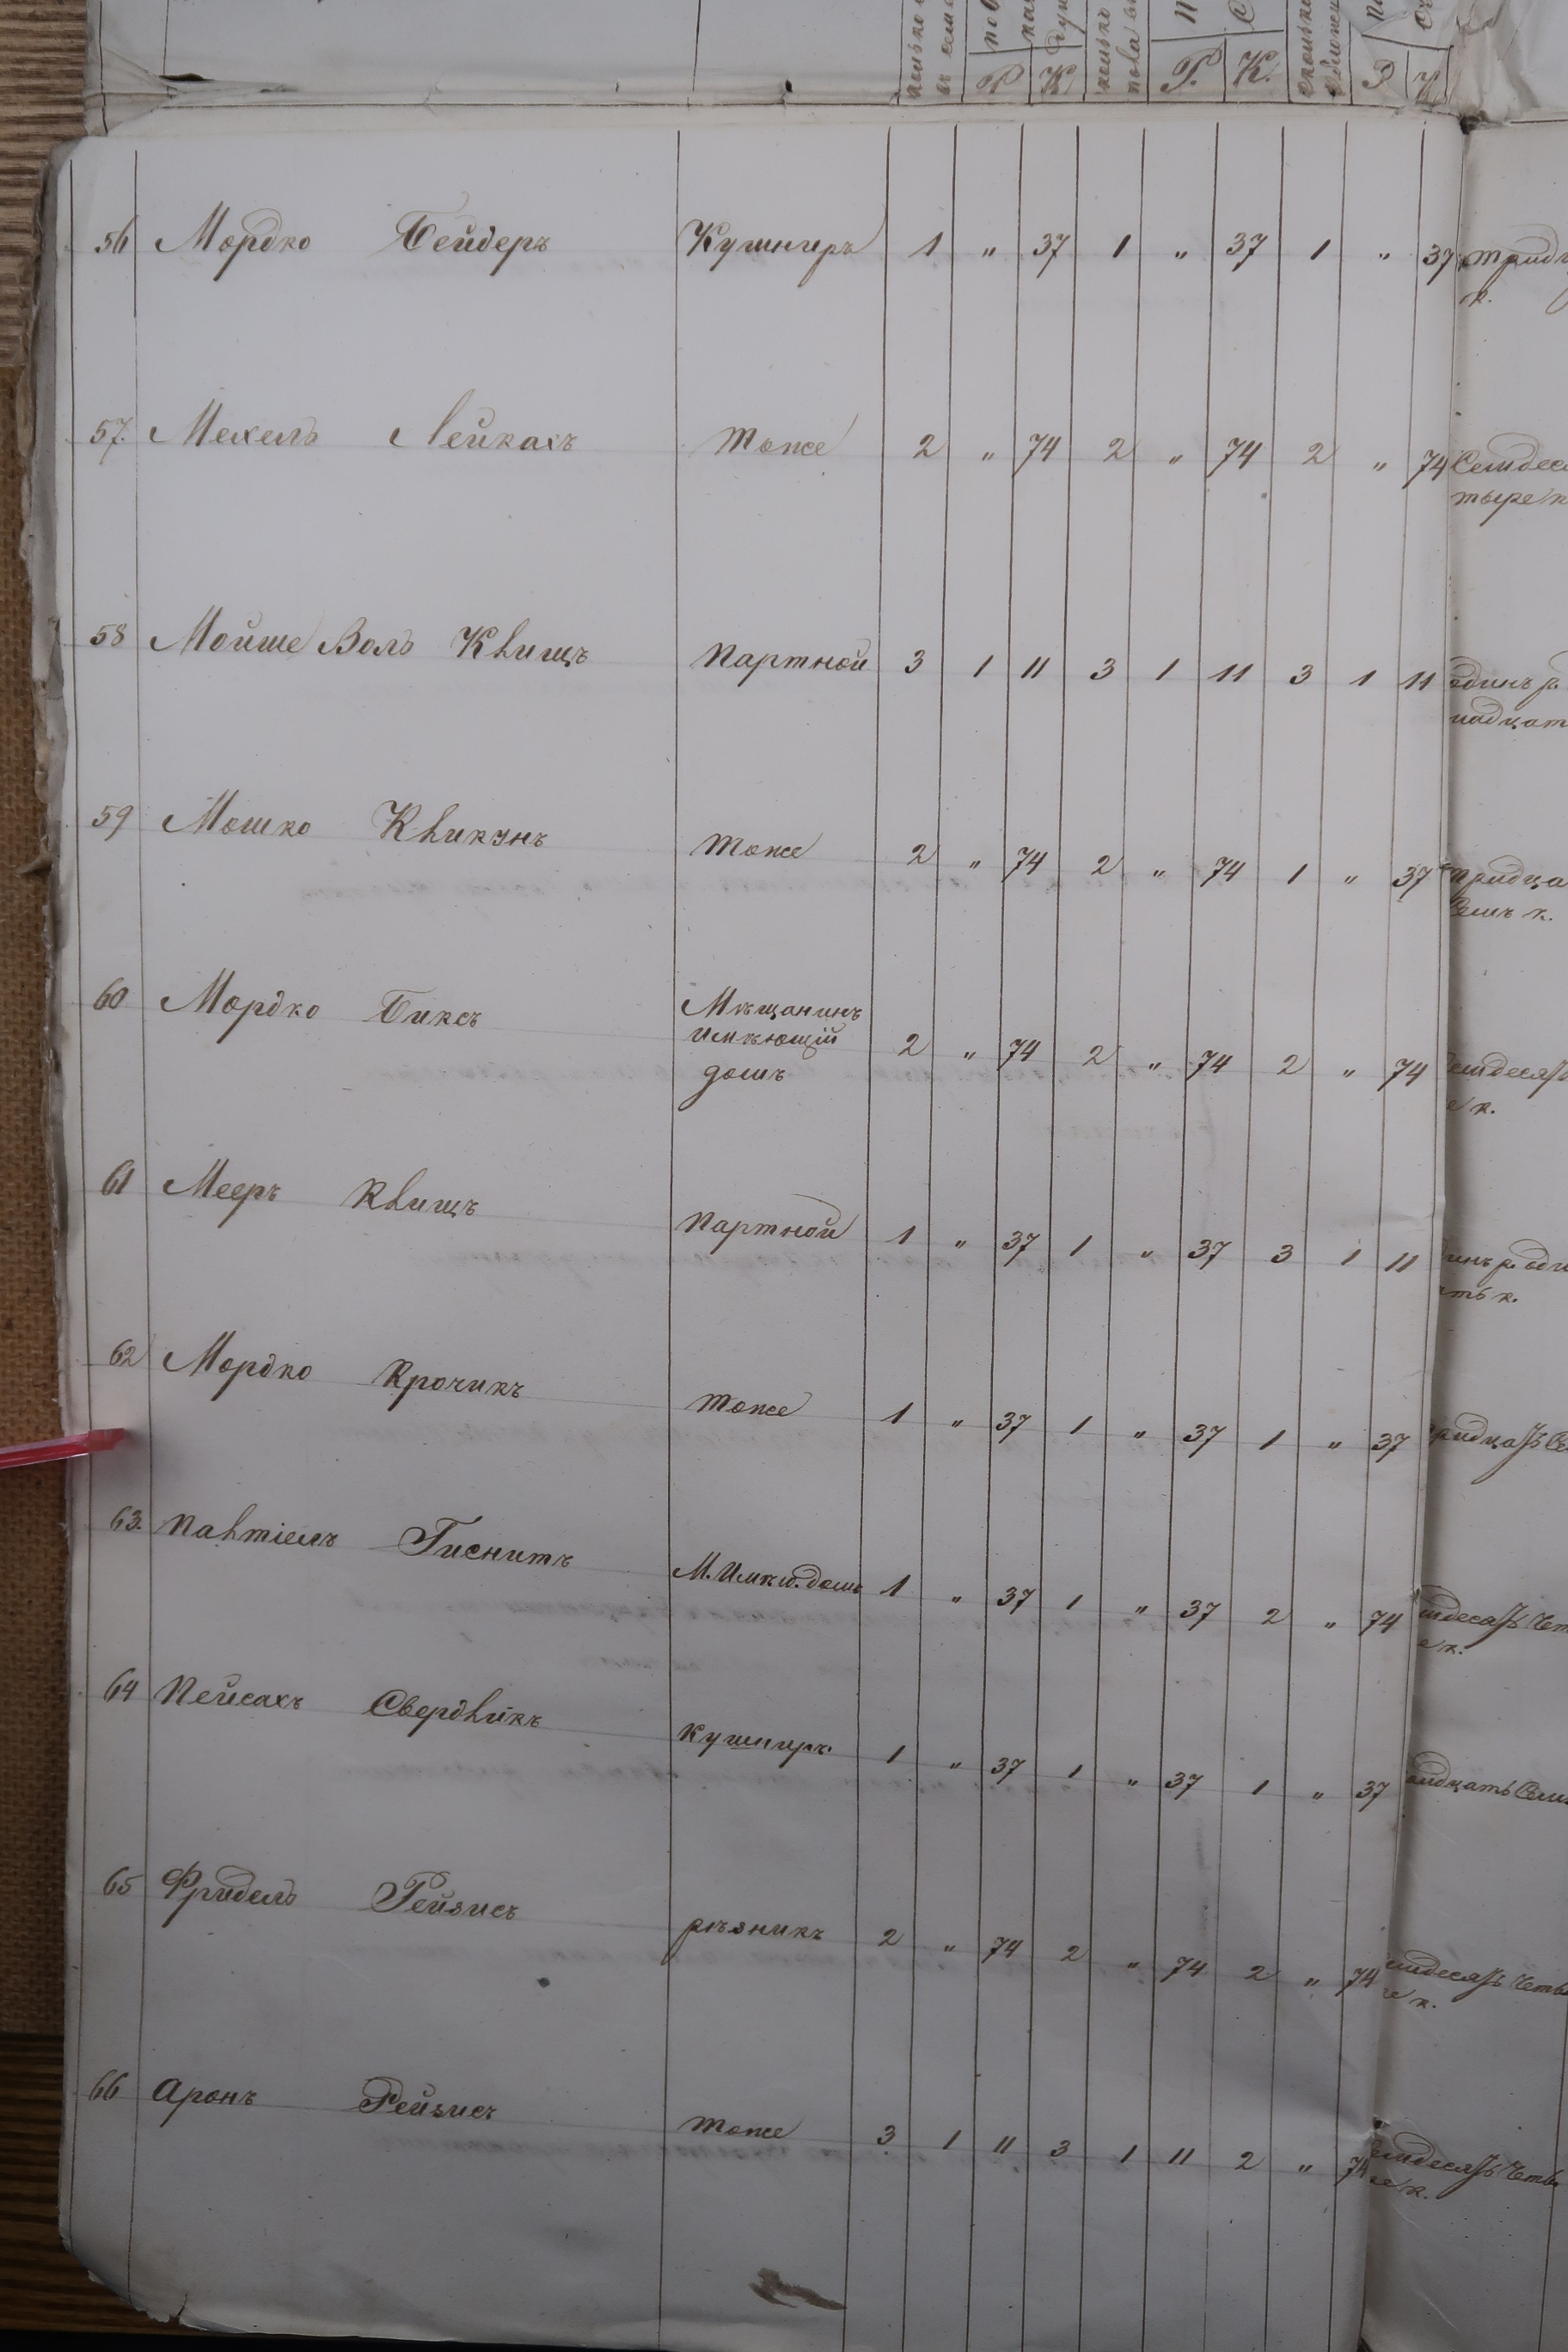 Р К Р. К. Р
56 Мордко Бейдеръ Кушниръ 1 " 37 1 " 37 1 " 37
к.
57. Мехель Лейкахъ тоже 2 " 74 2 " 74 2 " 74
58 Мойше Воль Квищъ партной 3 1 11 3 1 11 3 1 11 одинъ р.
надцат
59 Мошко Квикунъ тоже 2 " 74 2 " 74 1 " 37 тридца
семъ к.
60 Мордко Биксъ Мѣщанинъ имѣющій домъ 2 " 74 2 " 74 2 " 74
е к.
61 Мееръ Квищъ партной 1 " 37 1 " 37 3 1 11 инъ р. оди
ть к.
62 Мордко Крочикъ тоже 1 " 37 1 " 37 1 " 37 ридцать се
63. Павтіель Гиснитъ М. Имѣю. домъ 1 " 37 1 " 37 2 " 74 мдесать чет
е к.
64 Пейсахъ Свердликъ кушниръ 1 " 37 1 " 37 1 " 37 идцать семъ
65 Фридель Рейзисъ рѣзникъ 2 " 74 2 " 74 2 " 74 емдесять четы
ре к.
66 Аронъ Рейзисъ тоже 3 1 11 3 1 11 2 " 74 емдесять четы
ре к.